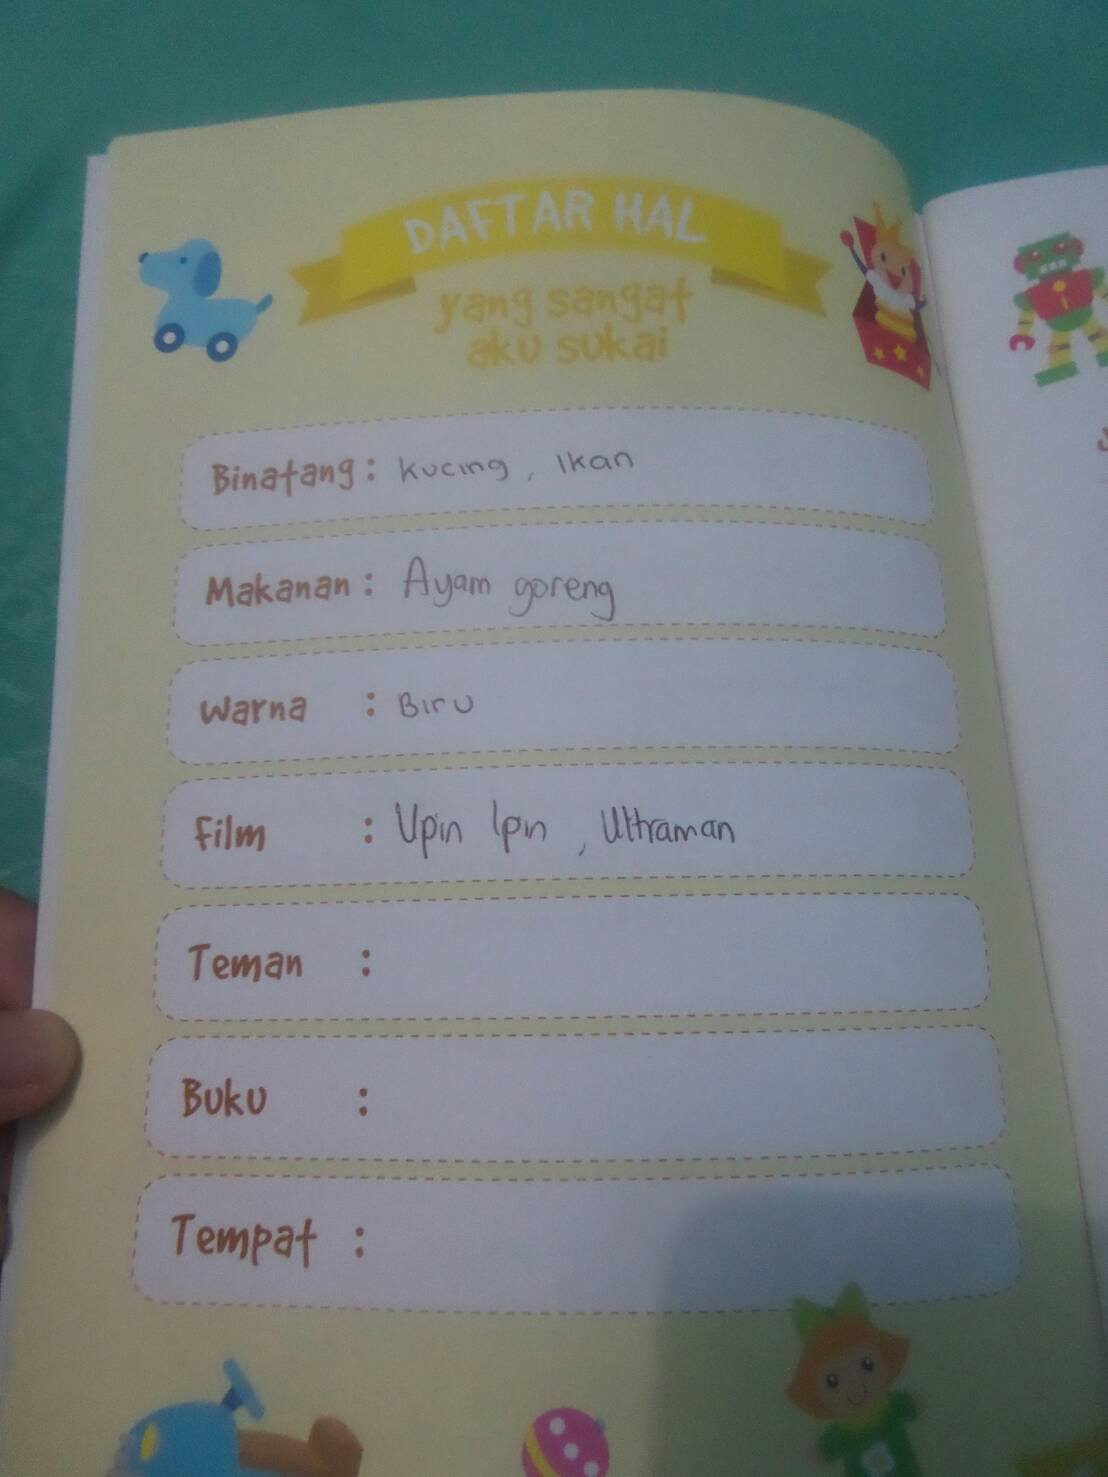 DAFTAR HAL
yang sangat
aku sukai
Binatang : kucing, Ikan
Makanan : Ayam goreng
Warna : Biru
Film : Upin Ipin, Ultraman
Teman :
Buku :
Tempat :